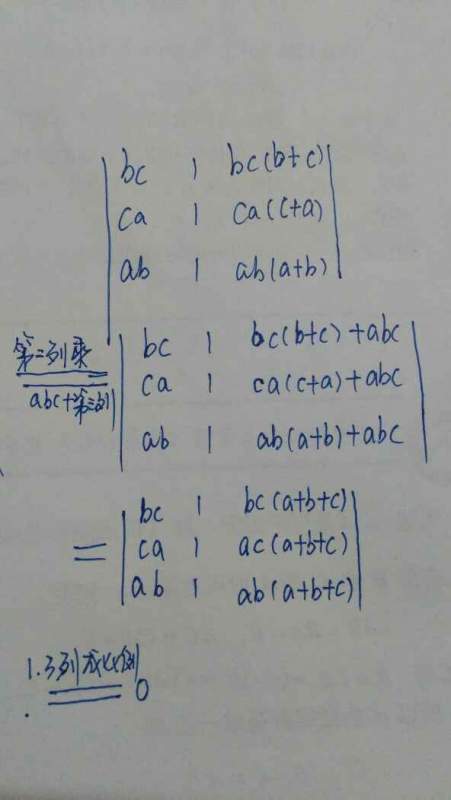 | bc 1 bc(b+c) |
| ca 1 ca(c+a) |
| ab 1 ab(a+b) |
第二列乘
abc+第三列
| bc 1 bc(b+c)+abc |
| ca 1 ca(c+a)+abc |
| ab 1 ab(a+b)+abc |
= | bc 1 bc(a+b+c) |
| ca 1 ac(a+b+c) |
| ab 1 ab(a+b+c) |
1.3列成比例
0